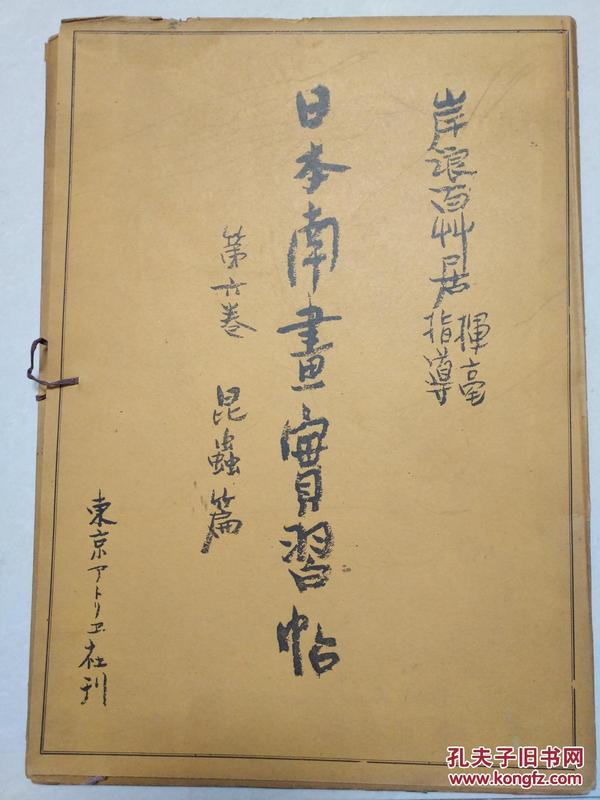 岸浪百艸居
揮毫
指導
日本南畫實習帖
第六巻 昆蟲篇
東京アトリヱ社刊
孔夫子旧书网
www.kongfz.com